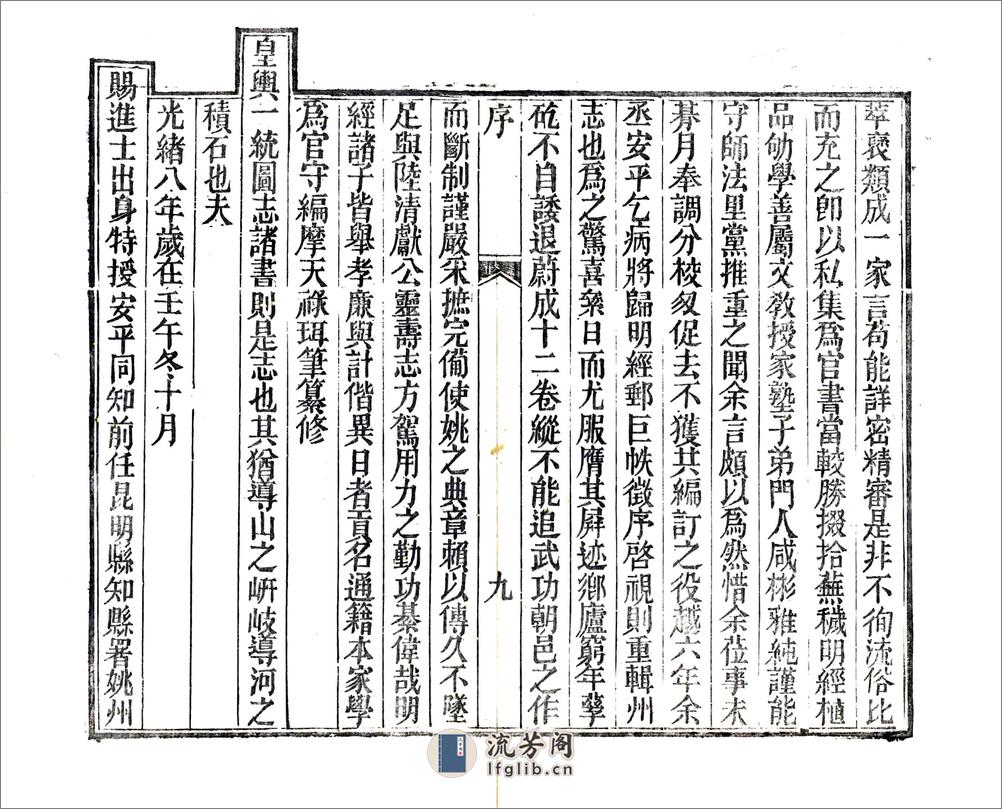 萃裒類成一家言苟能詳密精審是非不徇流俗比
而充之卽以私集爲官書當較勝掇拾蕪穢明經植
品劬學善屬文教授家塾子弟門人咸彬雅純謹能
守師法里黨推重之聞余言頗以爲然惜余莅事未
朞月奉調分校匆促去不獲共編訂之役越六年余
丞安平乞病將歸明經郵巨帙徵序啓視則重輯州
志也爲之驚喜絫日而尤服膺其屏迹鄉廬窮年孳
矻不自諉退蔚成十二卷縱不能追武功朝邑之作
序
九
而斷制謹嚴采摭完備使姚之典章賴以傳久不墜
足與陸清獻公靈壽志方駕用力之勤功綦偉哉明
經諸子皆舉孝廉與計偕異日者貢名通籍本家學
爲官守編摩天祿珥筆纂修
皇輿一統圖志諸書則是志也其猶導山之岍岐導河之
積石也夫
光緒八年歲在壬午冬十月
賜進士出身特授安平同知前任昆明縣知縣署姚州
流芳阁
lfglib.cn